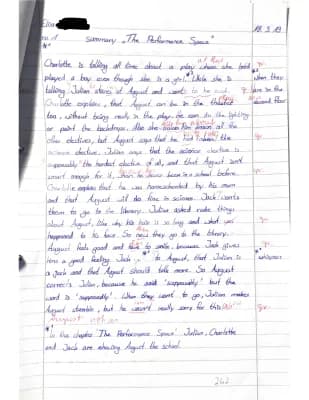 18.3.19
summary "The Performance Space"
Charlotte is talking all time about a play where she told
played a boy even though she is a girl. While she is
talking Julian stares at August and wants to
Charlotte explains, that August can be in the theater
too, without being really in the play: he can do the lighting
or paint the backdrops. Also she all the
other electives, but August says that he
science elective. Julian says that the science elective is
supposably "the hardest elective of all, and that August isn't
smart enough for it, been in a school before.
Charlotte explains that he was homeschooled by his mom
and that August will do fine in science. Jack wants
them to go to the library. Julian asked rude things
about August, like why his hair is so long and what
happened to his face. So now they go to the library.
August feels good and to smile, because Jack gives
him a good feeling. Jack to August, that Julian is
a jack and that August should talk more. So August
corrects Julian, because he said 'supposably' but the
word is 'supposedly'. When they went to go, Julian makes
August stumble, but he wasn't really sorry for this
In the chapter 'The Performance Space' Julian, Charlotte
and Jack are showing August the school.
when they
are in the
second floor
whispers
242